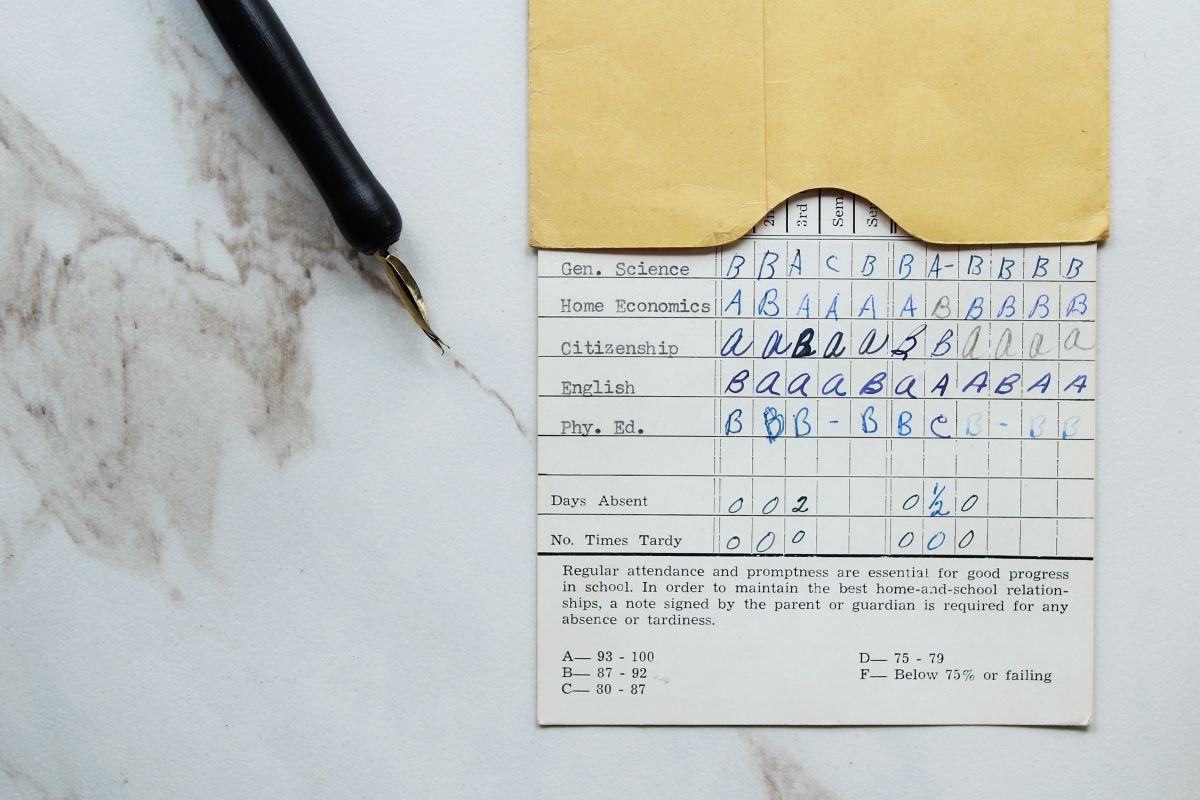 3rd
Gen. Science B B A C B B A- B B B B
Home Economics A B A A A A B B B B B
Citizenship a a B a a B B a a a a
English B a a a B a A A B A A
Phy. Ed. B B B - B B C B - B B
Days Absent 0 0 2 0 ½ 0
No. Times Tardy 0 0 0 0 0 0
Regular attendance and promptness are essential for good progress
in school. In order to maintain the best home-and-school relation-
ships, a note signed by the parent or guardian is required for any
absence or tardiness.
A— 93 - 100 D— 75 - 79
B— 87 - 92 F— Below 75% or failing
C— 80 - 87